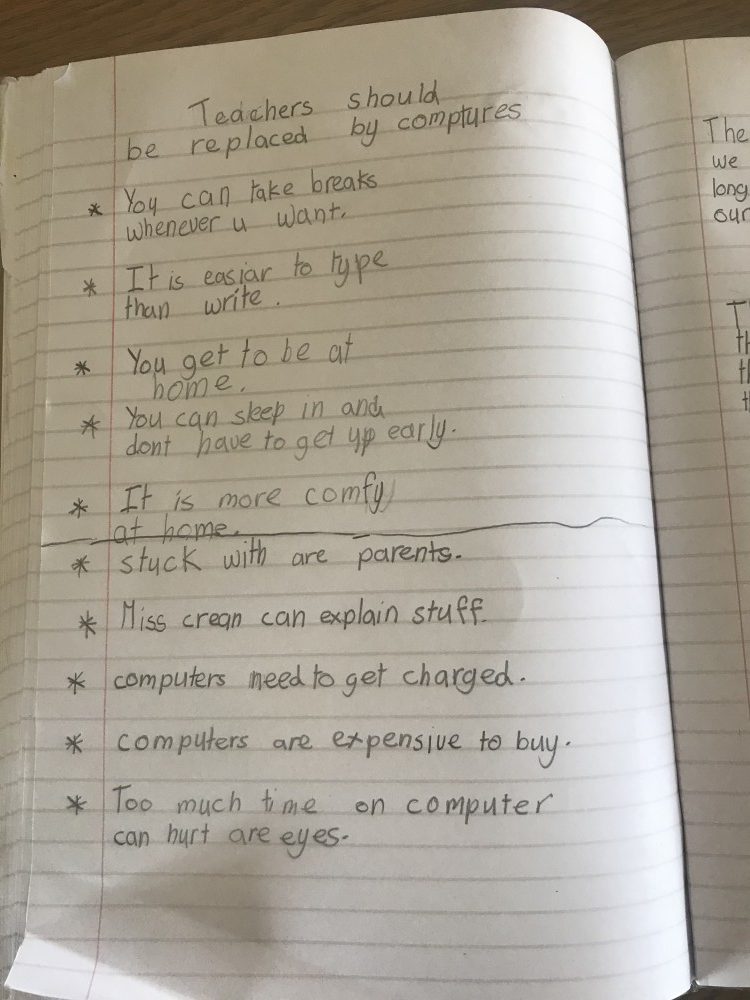 Teachers should
be replaced by comptures
* You can take breaks
whenever u want.
* It is easiar to type
than write.
* You get to be at
home.
* You can sleep in and
dont have to get up early.
* It is more comfy
at home.
* stuck with are parents.
* Miss crean can explain stuff.
* computers need to get charged.
* computers are expensive to buy.
* Too much time on computer
can hurt are eyes.
The
we
long
our